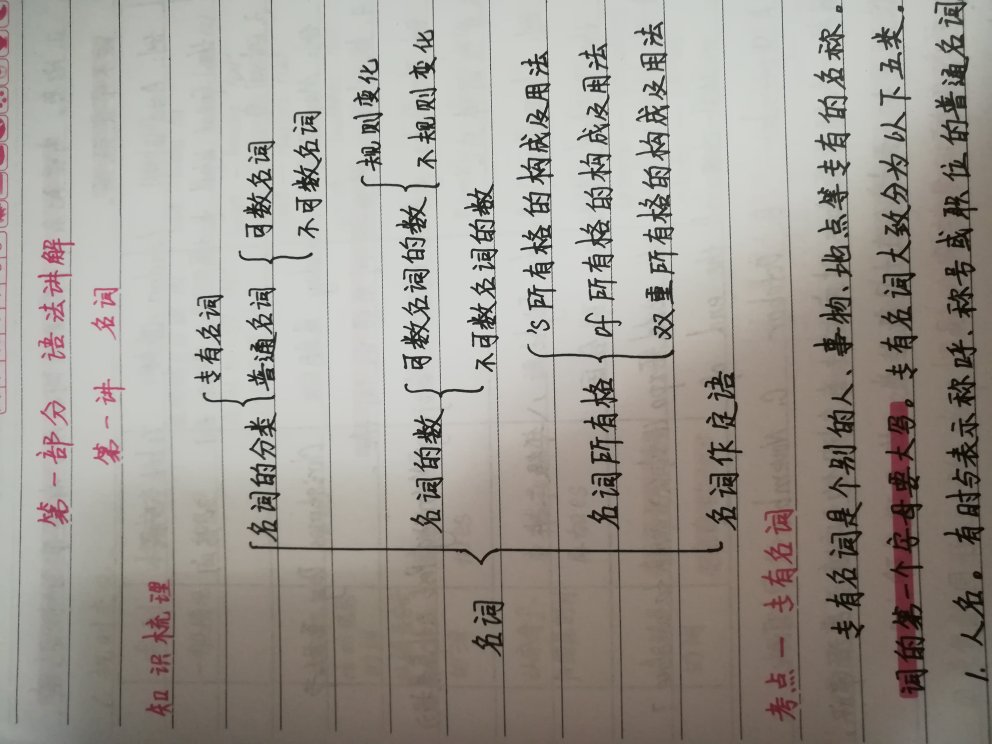 第一部分 语法讲解
第一讲 名词
知识梳理
专有名词
可数名词
名词的分类
普通名词
不可数名词
规则变化
可数名词的数
不规则变化
名词的数
不可数名词的数
名词
's所有格的构成及用法
名词所有格
of所有格的构成及用法
双重所有格的构成及用法
名词作定语
考点一 专有名词
专有名词是个别的人、事物、地点等专有的名称。
词的第一个字母要大写。专有名词大致分为以下五类。
1. 人名。有时与表示称呼、称号或职位的普通名词